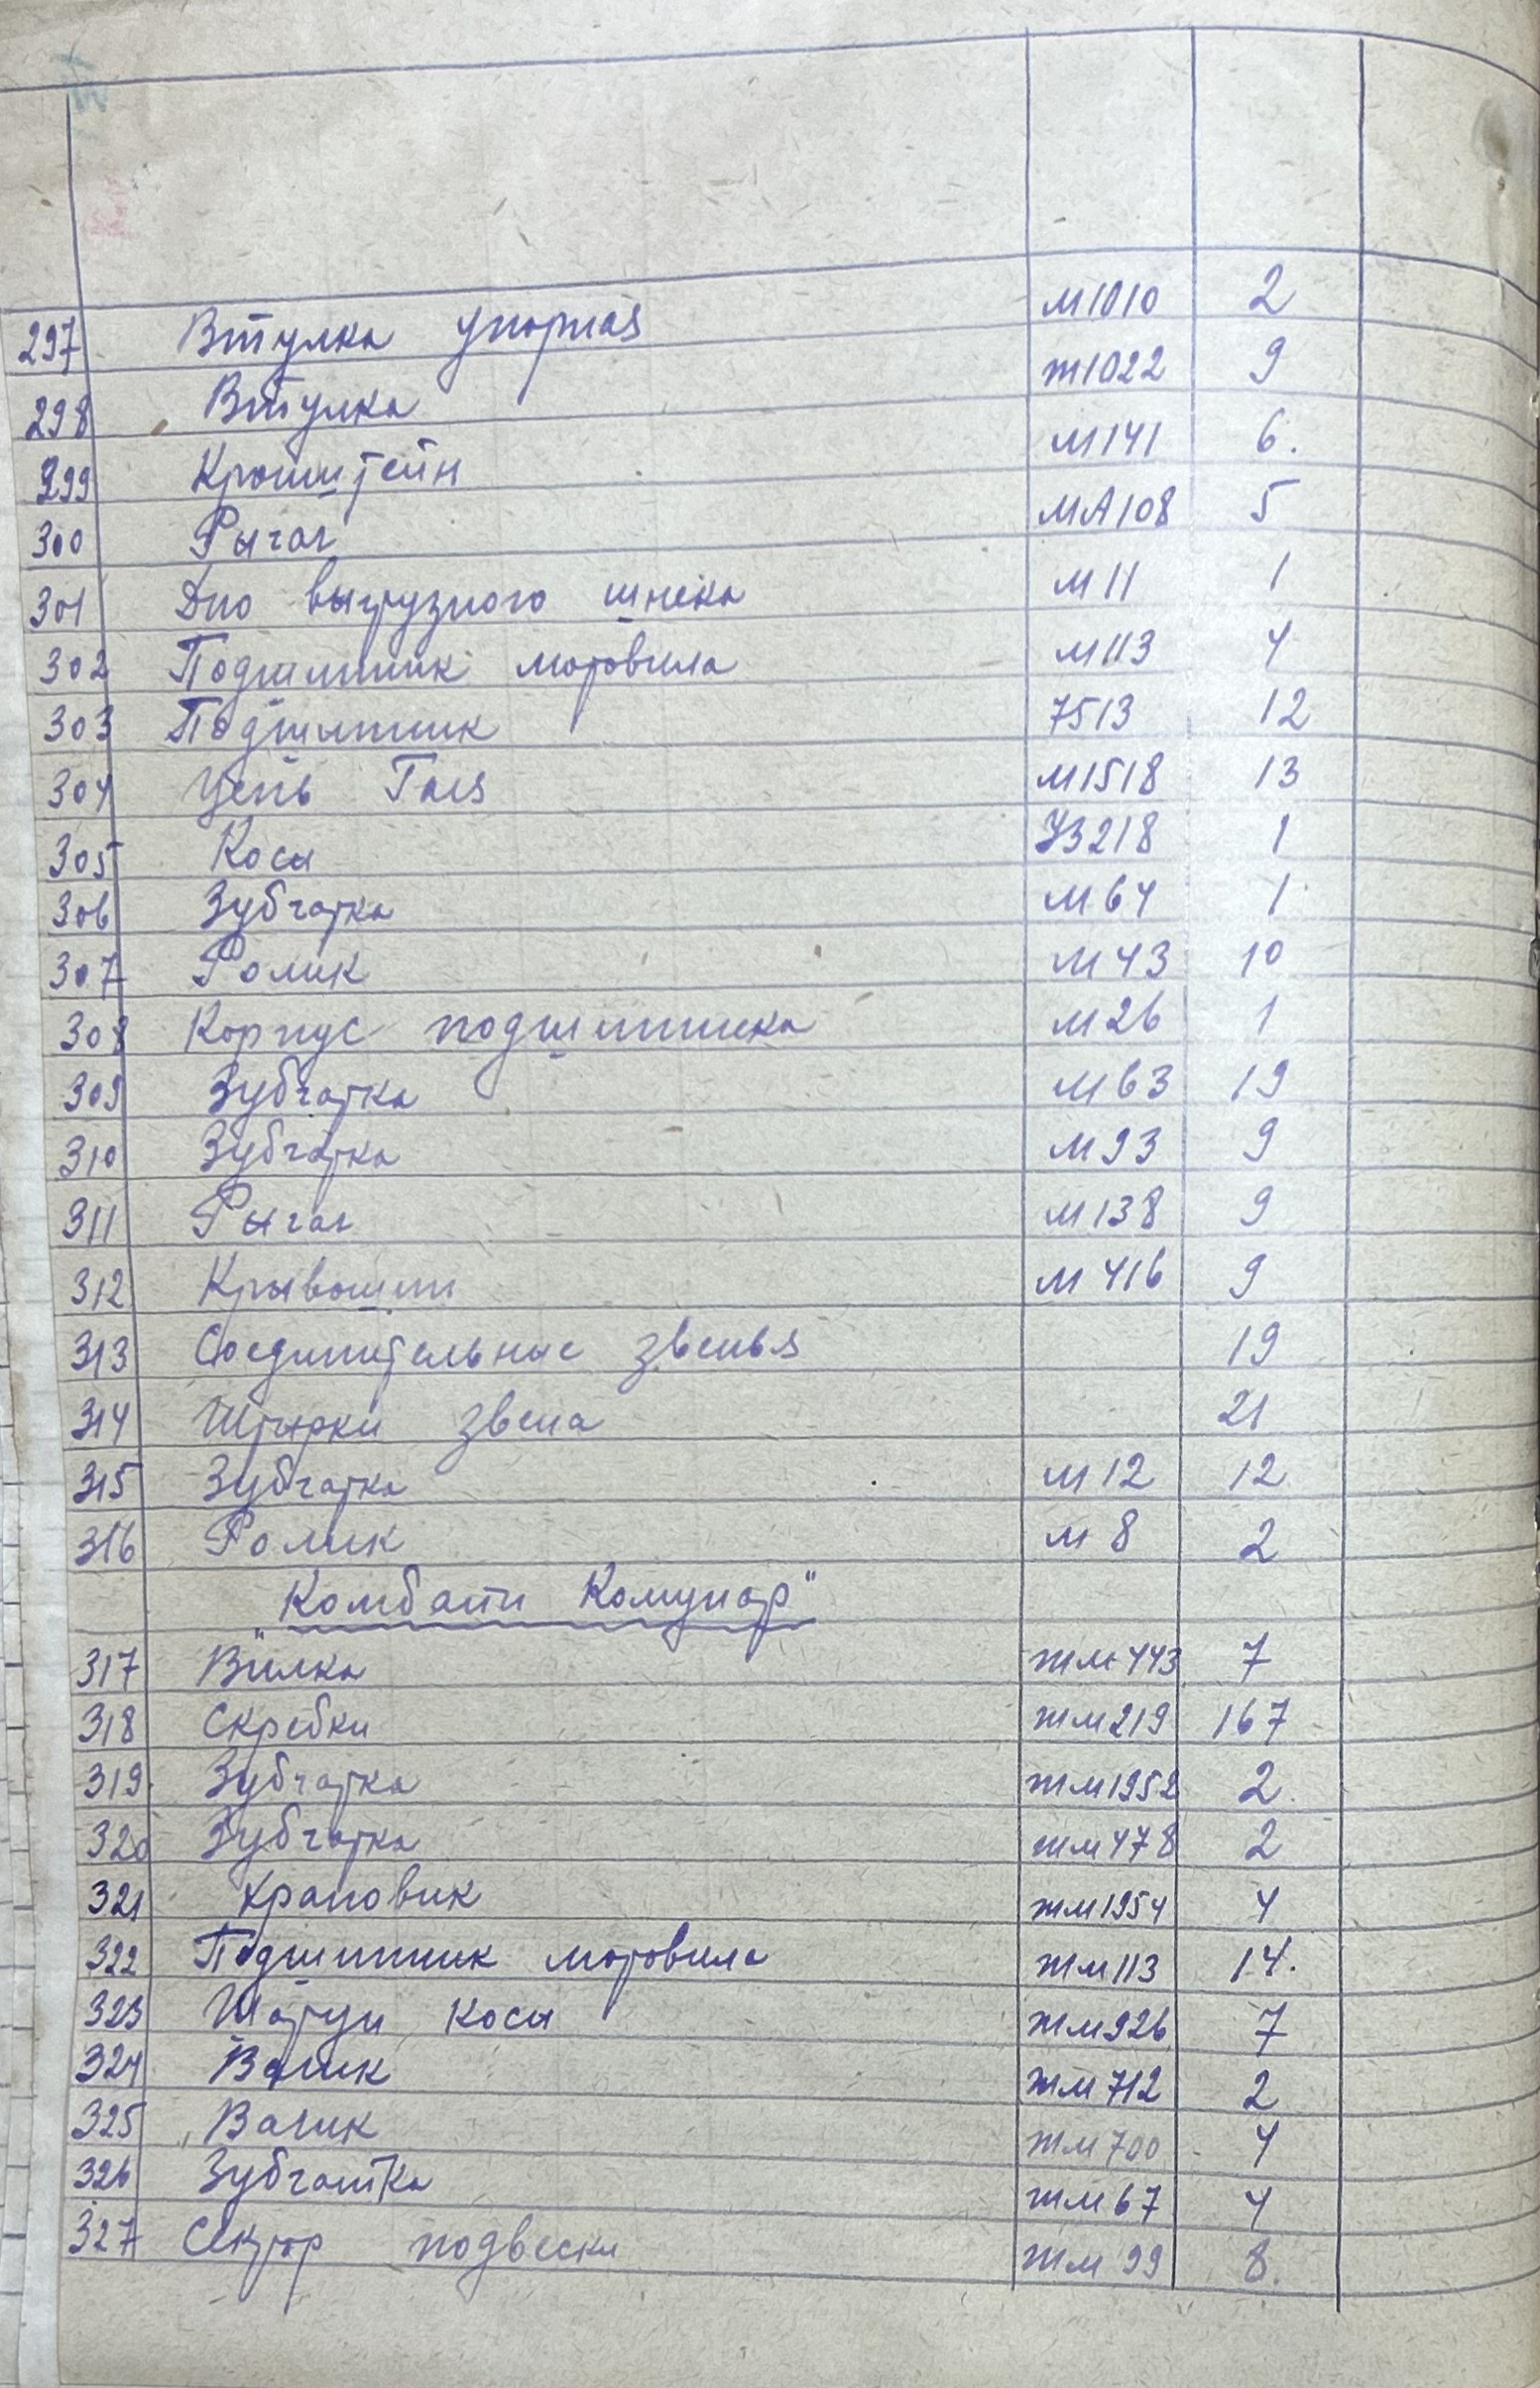 297 Втулка упорная М1010 2
298 Втулка т1022 9
299 Кронштейн М141 6.
300 Рычаг МА108 5
301 Дно выгрузного шнека М11 1
302 Подшипник мотовила М113 4
303 Подшипник 7513 12
304 Цепь Галя М1518 13
305 Коса УЗ218 1
306 Зубчатка М64 1
307 Ролик М43 10
308 Корпус подшипника М26 1
309 Зубчатка М63 19
310 Зубчатка М93 9
311 Рычаг М138 9
312 Крывошип М416 9
313 Соединительные звенья 19
314 Штырки звена 21
315 Зубчатка М12 12
316 Ролик М8 2
"Комбайн Комунар"
317 Вилка жм443 7
318 Скребки жм219 167
319 Зубчатка жм1952 2
320 Зубчатка жм478 2
321 Храповик жм1954 4
322 Подшипник мотовила жм113 14.
323 Шатун косы жм926 7
324 Валик жм712 2
325 Валик жм700 4
326 Зубчатка жм67 4
327 Сектор подвески жм99 8.